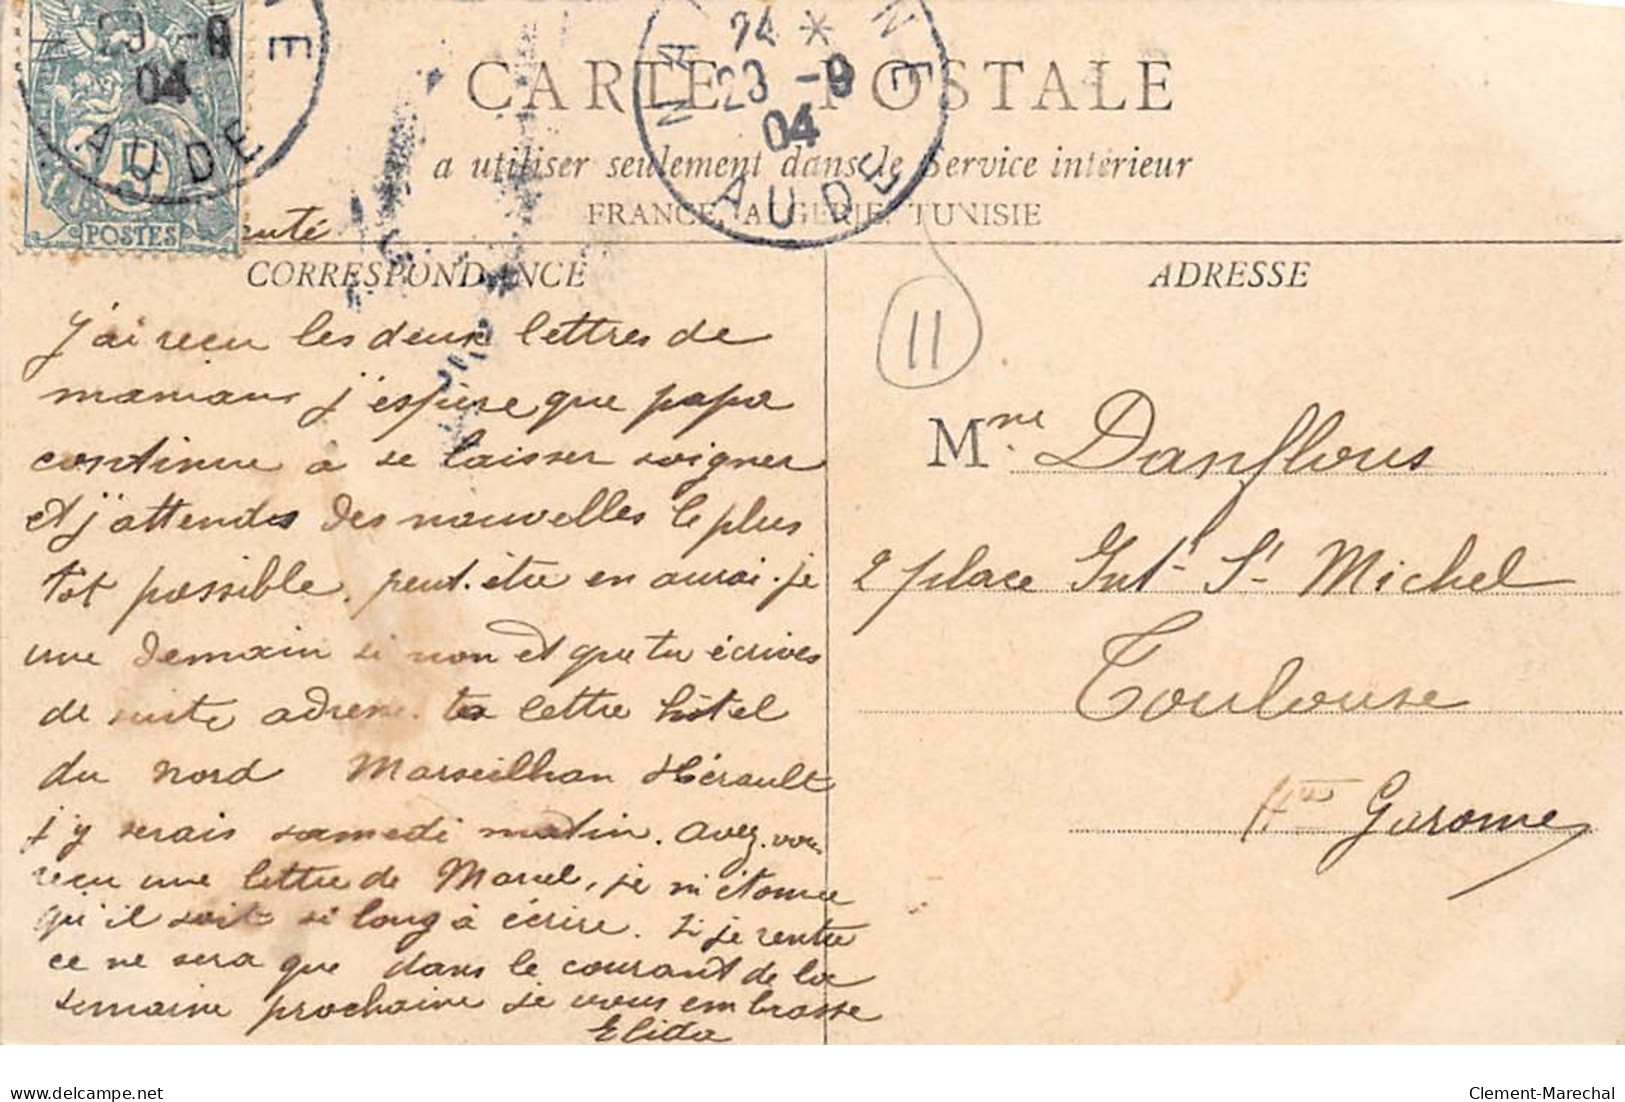 CARTE POSTALE
a utiliser seulement dans le Service intérieur
FRANCE, ALGERIE, TUNISIE
24 *
23 -9
04
AUDE
23 -9
04
AUDE
5
POSTES
CORRESPONDANCE
J'ai reçu les deux lettres de
maman j'espère que papa
continue à se laisser soigner
et j'attends des nouvelles le plus
tot possible. peut-être en aurai-je
une demain si non et que tu écrives
de suite adresse ta lettre hôtel
du nord Marseilhan Hérault
j'y serais samedi matin. avez-vous
reçu une lettre de Marcel, je m'étonne
qu'il soit si long à écrire. Si je rentre
ce ne sera que dans le courant de la
semaine prochaine je vous embrasse
Elida
ADRESSE
11
Mme Danflous
2 place Int St Michel
Toulouse
Hte Garonne
delcampe.net
Clement-Marechal